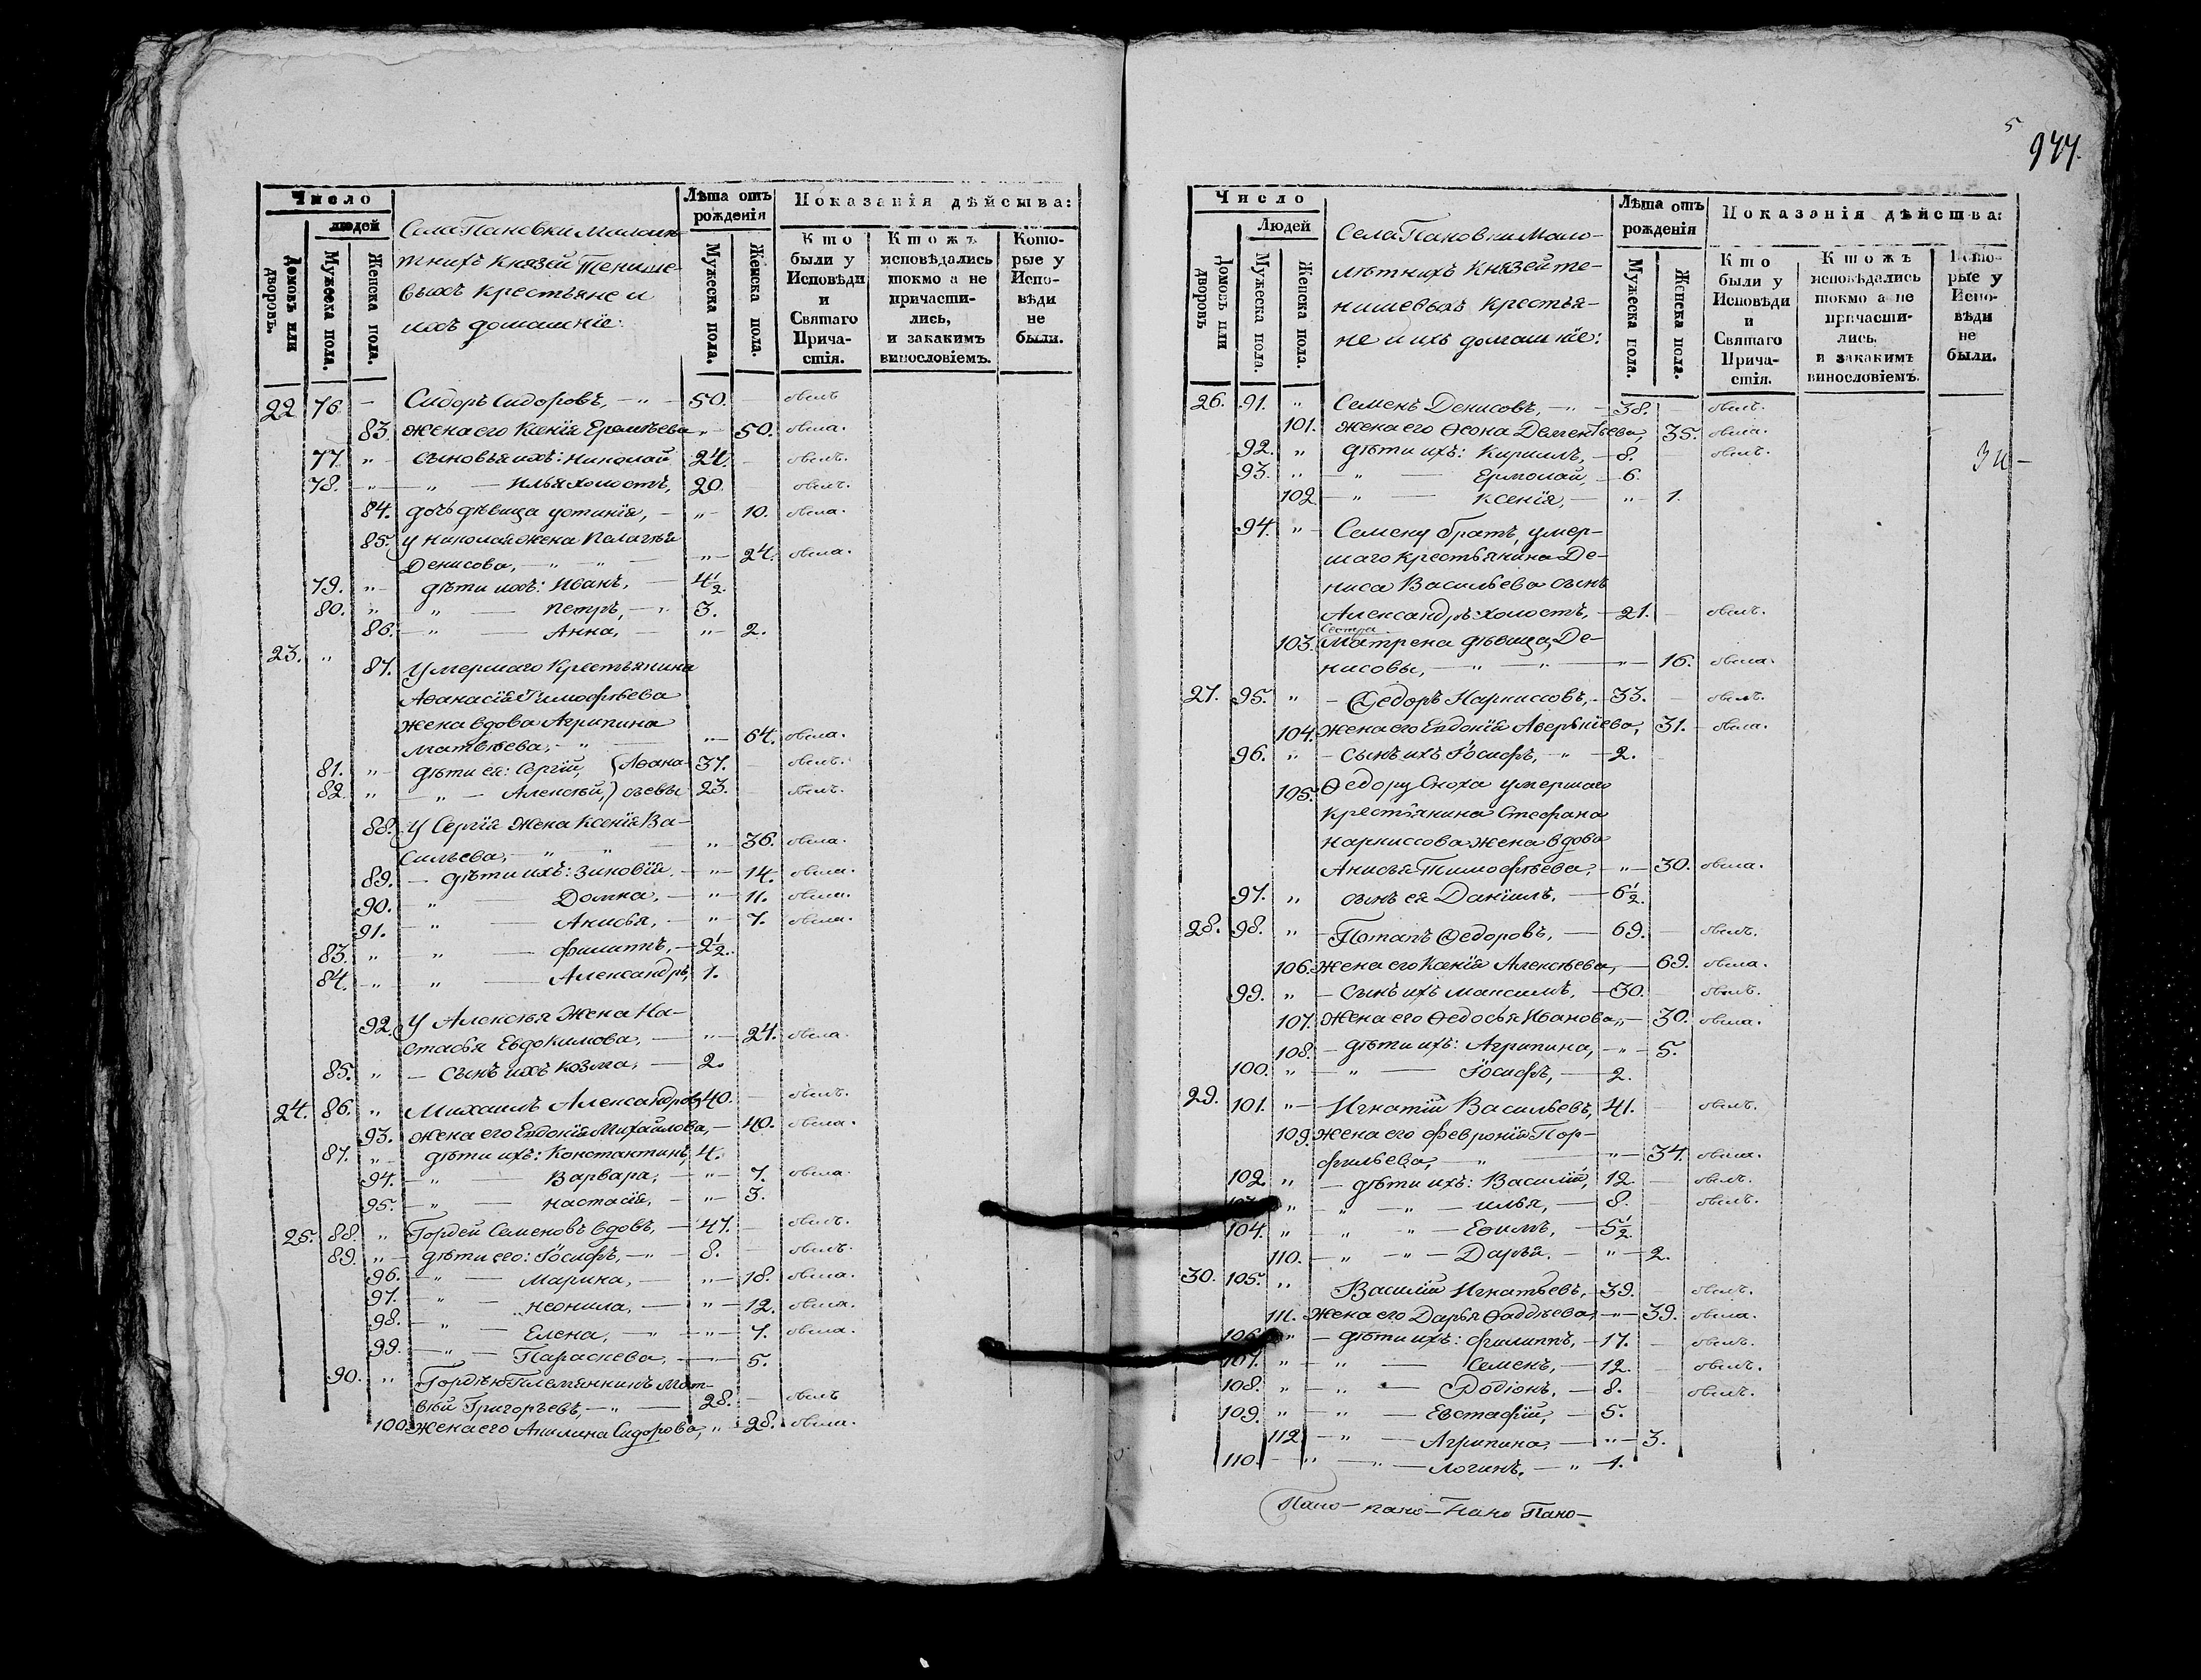 Число
людей
Домовъ или дворовъ.
Мужеска пола.
Женска пола.
Села Пановки Малолѣ-
тнихъ Князей Тенише-
выхъ крестьяне и
ихъ домашнїе:
Лѣта отъ рожденія
Мужеска пола.
Женска пола.
Показанія дѣйства:
Кто были у Исповѣди и Святаго Прича-стія.
Ктожъ исповѣдались токмо а не причасти-лись, и закакимъ винословіемъ.
Кото-рые у Испо-вѣди не были.
22 76 — Сидоръ Сидоровъ, — „ — 50. — былъ
83. жена его Ксенїя Еремѣева „ — 50. была.
77. „ — сыновья ихъ: Николай 24. — былъ.
78. — „ — „ — Илья холостъ, 20. былъ.
84. дочь дѣвица устинїя, — „ — 10. была.
85. у николая жена Пелагѣя
Денисова, — „ — „ — „ — 24. была.
79. „ — дѣти ихъ: Иванъ, — 4½.
80. „ „ — петръ, — „ 3.
86. — „ — Анна, — „ — 2.
23. „ 87. Умершаго Крестьянина
Аѳанасїя Тимофѣева
жена вдова Агрипина
Матвѣева, — „ — „ — 64. была.
81. „ — дѣти ея: Сергїй, (Аѳана- 37. — былъ.
82. „ — „ — Алексѣй,) сьевы 23. — былъ.
88. У Сергїя жена Ксенїя Ва-
сильева, — „ — „ — „ — 36. была.
89. — дѣти ихъ: зиновїя. — „ — 14. была.
90. — „ — Домна, — „ — 11. была.
91. — „ — Анисья, — „ — 7. была.
83. „ „ — филиппъ, — 2½.
84. — „ — „ — Александръ, 1.
92. У Алексѣя жена На-
стасья Евдокимова, — „ — 24. была.
85. „ — сынъ ихъ козма, — 2.
24. 86. „ Михаилъ Александровъ 40. — былъ.
93. жена его Евдокїя Михайлова, — 40. была.
87. „ — дѣти ихъ: Константинъ, 4.
94. — „ — Варвара, — „ — 7. была.
95. — „ — настасїя, — „ — 3.
25. 88. „ Гордей Семеновъ вдовъ, — 47. — былъ.
89. „ — дѣти его: Їосифъ, — „ — 8. — былъ.
96. — „ — марина, — „ — 18. была.
97. — „ — неонила, — „ — 12. была.
98. — „ — Елена, — „ — „ — 7. была.
99. — „ — Параскева, — „ — 5.
90. „ Гордѣю Племянникъ Мат-
вѣй Григорьевъ, — „ — 28. — былъ
100. жена его Акилина Сидорова, „ — 28. была.
5
944.
Число
Людей
Домовъ или дворовъ
Мужеска пола.
Женска пола.
Села Пановки Мало-
лѣтнихъ Князей те-
нишевыхъ Крестья-
не и ихъ домашнїе:
Лѣта отъ рожденія
Мужеска пола.
Женска пола.
Показанія дѣйства:
Кто были у Исповѣди и Святаго Прича-стія.
Ктожъ исповѣдались токмо а не причасти-лись. и закакимъ винословіемъ.
Кото-рые у Испо-вѣди не были.
26. 91. „ Семенъ Денисовъ, — „ — 38. — былъ.
101. жена его Ѳеона Дементьева, 35. была.
92. „ дѣти ихъ: Кириллъ, — 8. — былъ.
93. „ — „ — Ермолай, — 6.
102 — „ — Ксенїя, — „ — 1.
94. „ — Семену братъ, умер-
шаго крестьянина Де-
ниса Васильева сынъ
Александръ холостъ, — 21. — былъ.
Сестра
103. Матрена дѣвица, Де-
нисовы, — „ — „ — „ — 16. была.
27. 95. „ — Ѳедоръ Наркиссовъ, — 33. — былъ.
104. жена его Евдокїя Аверькїева, 31. — была.
96. „ — сынъ ихъ Їосифъ, — „ — 2.
105. Ѳедору Сноха умершаго
крестьянина Стефана
наркиссова жена вдова
Анисья Тимофѣева, — „ — 30. была.
97. „ сынъ ея Данїилъ, — 6½.
28. 98. „ — Потапъ Ѳедоровъ, — 69. — былъ.
106. жена его Ксенїя Алексѣева, — 69. была.
99. „ — сынъ ихъ максимъ, — 30. — былъ.
107. жена его Ѳедосья Иванова, „ — 30. была.
108. — дѣти ихъ: Агрипина, — „ — 5.
100. „ — „ — Їосифъ, — 2.
29. 101. „ — Игнатїй Васильевъ, 41. — былъ.
109. жена его февронїя Пор-
фильева, — „ — „ — 34. была.
102 „ — дѣти ихъ: Василїй, 12. — былъ.
103. „ — „ — „ — илья, — 8. — былъ.
104. „ — „ — „ — Ефимъ, — 5½.
110. — „ — „ — Дарья. — „ — 2.
30. 105. „ Василїй Игнатьевъ, — 39. — былъ.
111. Жена его Дарья Ѳаддѣева, — „ — 39. была.
106. „ — дѣти ихъ: филиппъ, — 17. — былъ.
107. „ — „ — Семенъ, — 12. — былъ.
108. „ — „ — Родїонъ, — 8. — былъ.
109. „ — „ — Евстафїй, — 5.
112 — „ — Агрипина, — „ — 3.
110. — „ — „ — логинъ, — „ — 1.
Пано — пано — Пано Пано —